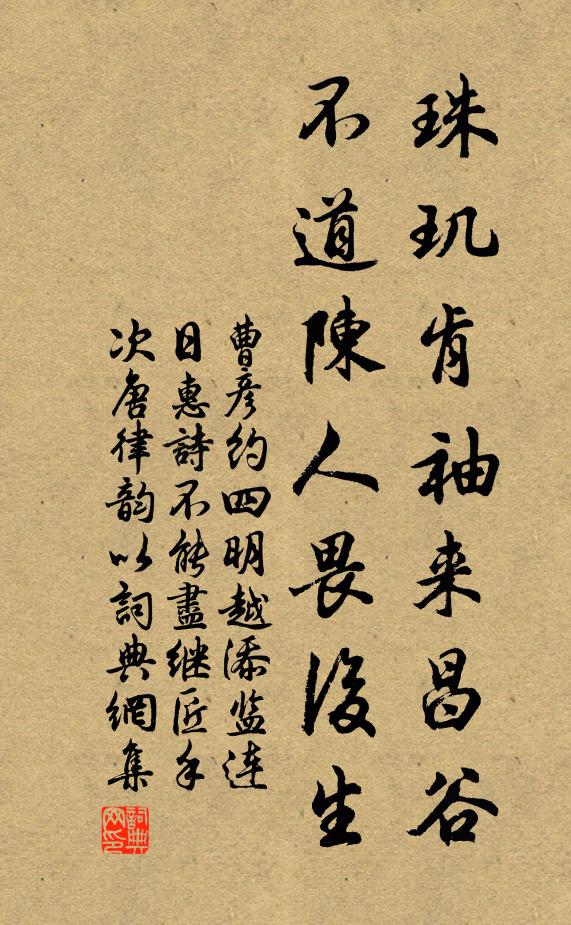 珠玑肯袖来昌谷
不道陳人畏後生
曹彦约四明越添监连
日惠詩不能盡继匠手
次唐律韵以詞典網集
詞典
网印